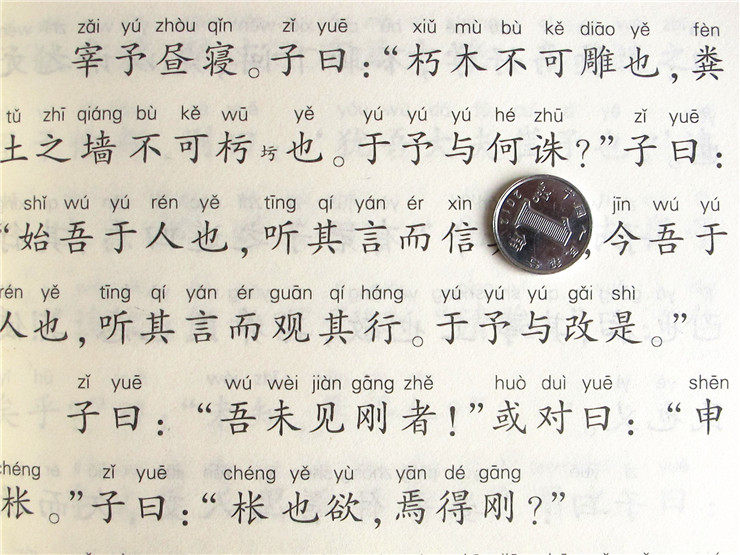 zǎi yú zhòu qǐn zǐ yuē xiǔ mù bù kě diāo yě fèn
宰予昼寝。子曰:“朽木不可雕也,粪
tǔ zhī qiáng bù kě wū yě yú yú yú hé zhū zǐ yuē
土之墙不可杇圬也。于予与何诛?”子曰:
shǐ wú yú rén yě tīng qí yán ér xìn jīn wú yú
“始吾于人也,听其言而信,今吾于
1
rén yě tīng qí yán ér guān qí háng yú yú yú gǎi shì
人也,听其言而观其行。于予与改是。”
zǐ yuē wú wèi jiàn gāng zhě huò duì yuē shēn
子曰:“吾未见刚者!”或对曰:“申
chéng zǐ yuē chéng yě yù yān dé gāng
枨。”子曰:“枨也欲,焉得刚?”